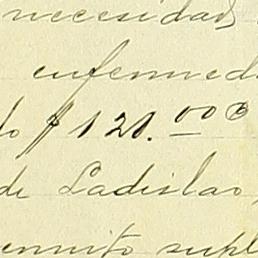 necesidad
enfermed
do $ 120.00
de Ladislao,
ermito supl